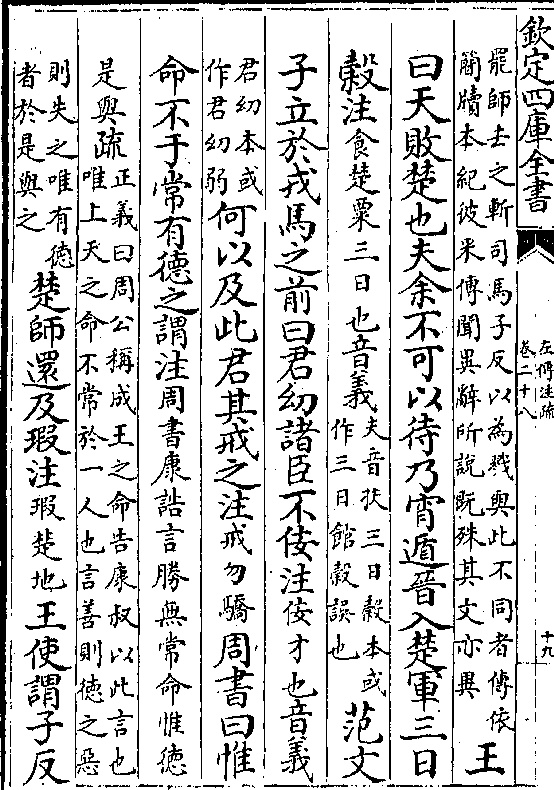 欽定四庫全書
左傳注疏
卷二十八
十九
罷師去之斬司馬子反以為戮與此不同者傳依
簡牘本紀彼采傳聞異辭所說既殊其文亦異
王
曰天敗楚也夫余不可以待乃宵遁晉入楚軍三日
穀注食楚粟三日也音義
夫音扶三日穀本或
作三日館穀誤也
范文
子立於戎馬之前曰君幼諸臣不佞注佞才也音義
君幼本或
作君幼弱
何以及此君其戒之注戒勿驕周書曰惟
命不于常有德之謂注周書康誥言勝無常命惟德
是與疏
正義曰周公稱成王之命告康叔以此言也
唯上天之命不常於一人也言善則德之惡
則失之唯有德
者於是與之
楚師還及瑕注瑕楚地王使謂子反